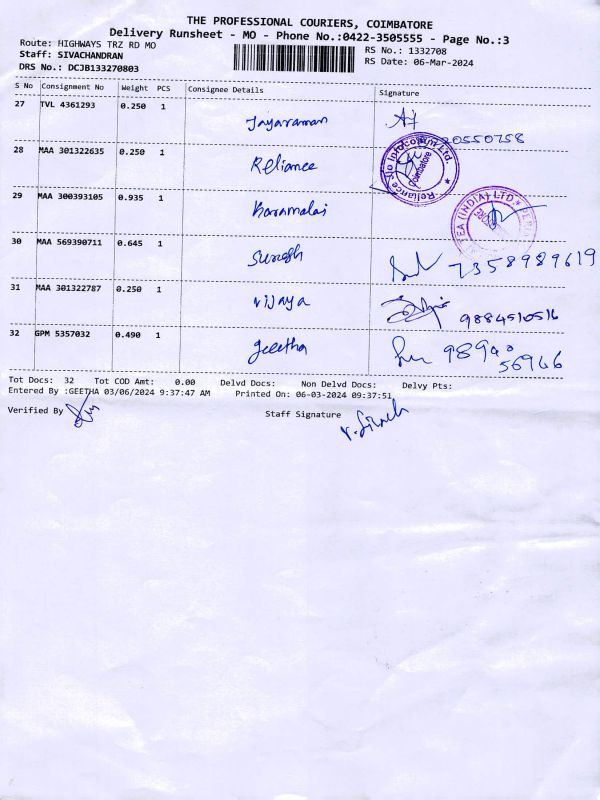 THE PROFESSIONAL COURIERS, COIMBATORE
Delivery Runsheet - MO - Phone No.:0422-3505555 - Page No.:3
Route: HIGHWAYS TRZ RD MO
RS No.: 1332708
Staff: SIVACHANDRAN
RS Date: 06-Mar-2024
DRS No.: DCJB133270803
S No Consignment No Weight PCS Consignee Details Signature
27 TVL 4361293 0.250 1
Jayaraman
20550758
28 MAA 301322635 0.250 1
Reliance
Reliance Jio Infocomm Ltd.
Coimbatore
29 MAA 300393105 0.935 1
Karamalai
TEA (INDIA) LTD
30 MAA 569390711 0.645 1
Suresh
7358989619
31 MAA 301322787 0.250 1
Vijaya
9884510516
32 GPM 5357032 0.490 1
Geetha
Tot Docs: 32 Tot COD Amt: 0.00 Delvd Docs: Non Delvd Docs: Delvy Pts:
Entered By :GEETHA 03/06/2024 9:37:47 AM Printed On: 06-03-2024 09:37:51
Verified By
Staff Signature